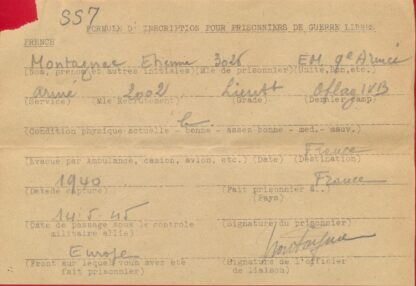 SS7
FORMULE D'INSCRIPTION POUR PRISONNIERS DE GUERRE LIBRES
FRENCH
Montagnac Etienne 3026 EM 9e Armée
(Nom, prenom et autres initiales)(Mle de prisonnier)(Unité,Bon,etc.)
Arme 2002 Lieut Oflag IVB
(Service) (Mle Recrutement) (Grade) (Dernier camp)
b
(Condition physique actuelle - bonne - assez bonne - med.- mauv.)
France
(Evacué par Ambulance, camion, avion, etc.) (Date) (Destination)
1940 France
(Date de capture) (Fait prisonnier à..)
(Pays)
14.5.45
(Date de passage sous le controle (Signature du prisonnier)
militaire allié)
Europe
(Front sur lequel vous avez été (Signature de l'officier
fait prisonnier) de liaison)